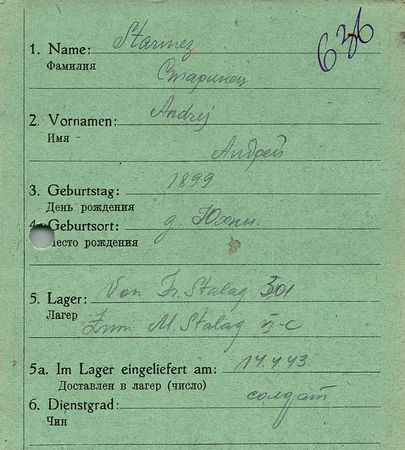 636
1. Name: Starinez
Фамилия
Старинец
2. Vornamen: Andrej
Имя
Андрей
3. Geburtstag: 1899
День рождения
4. Geburtsort: д. Юхны.
Место рождения
5. Lager: Von Fr. Stalag 301
Лагер
Zum M. Stalag II-C
5a. Im Lager eingeliefert am: 14.4.43
Доставлен в лагер (число)
6. Dienstgrad: солдат
Чин